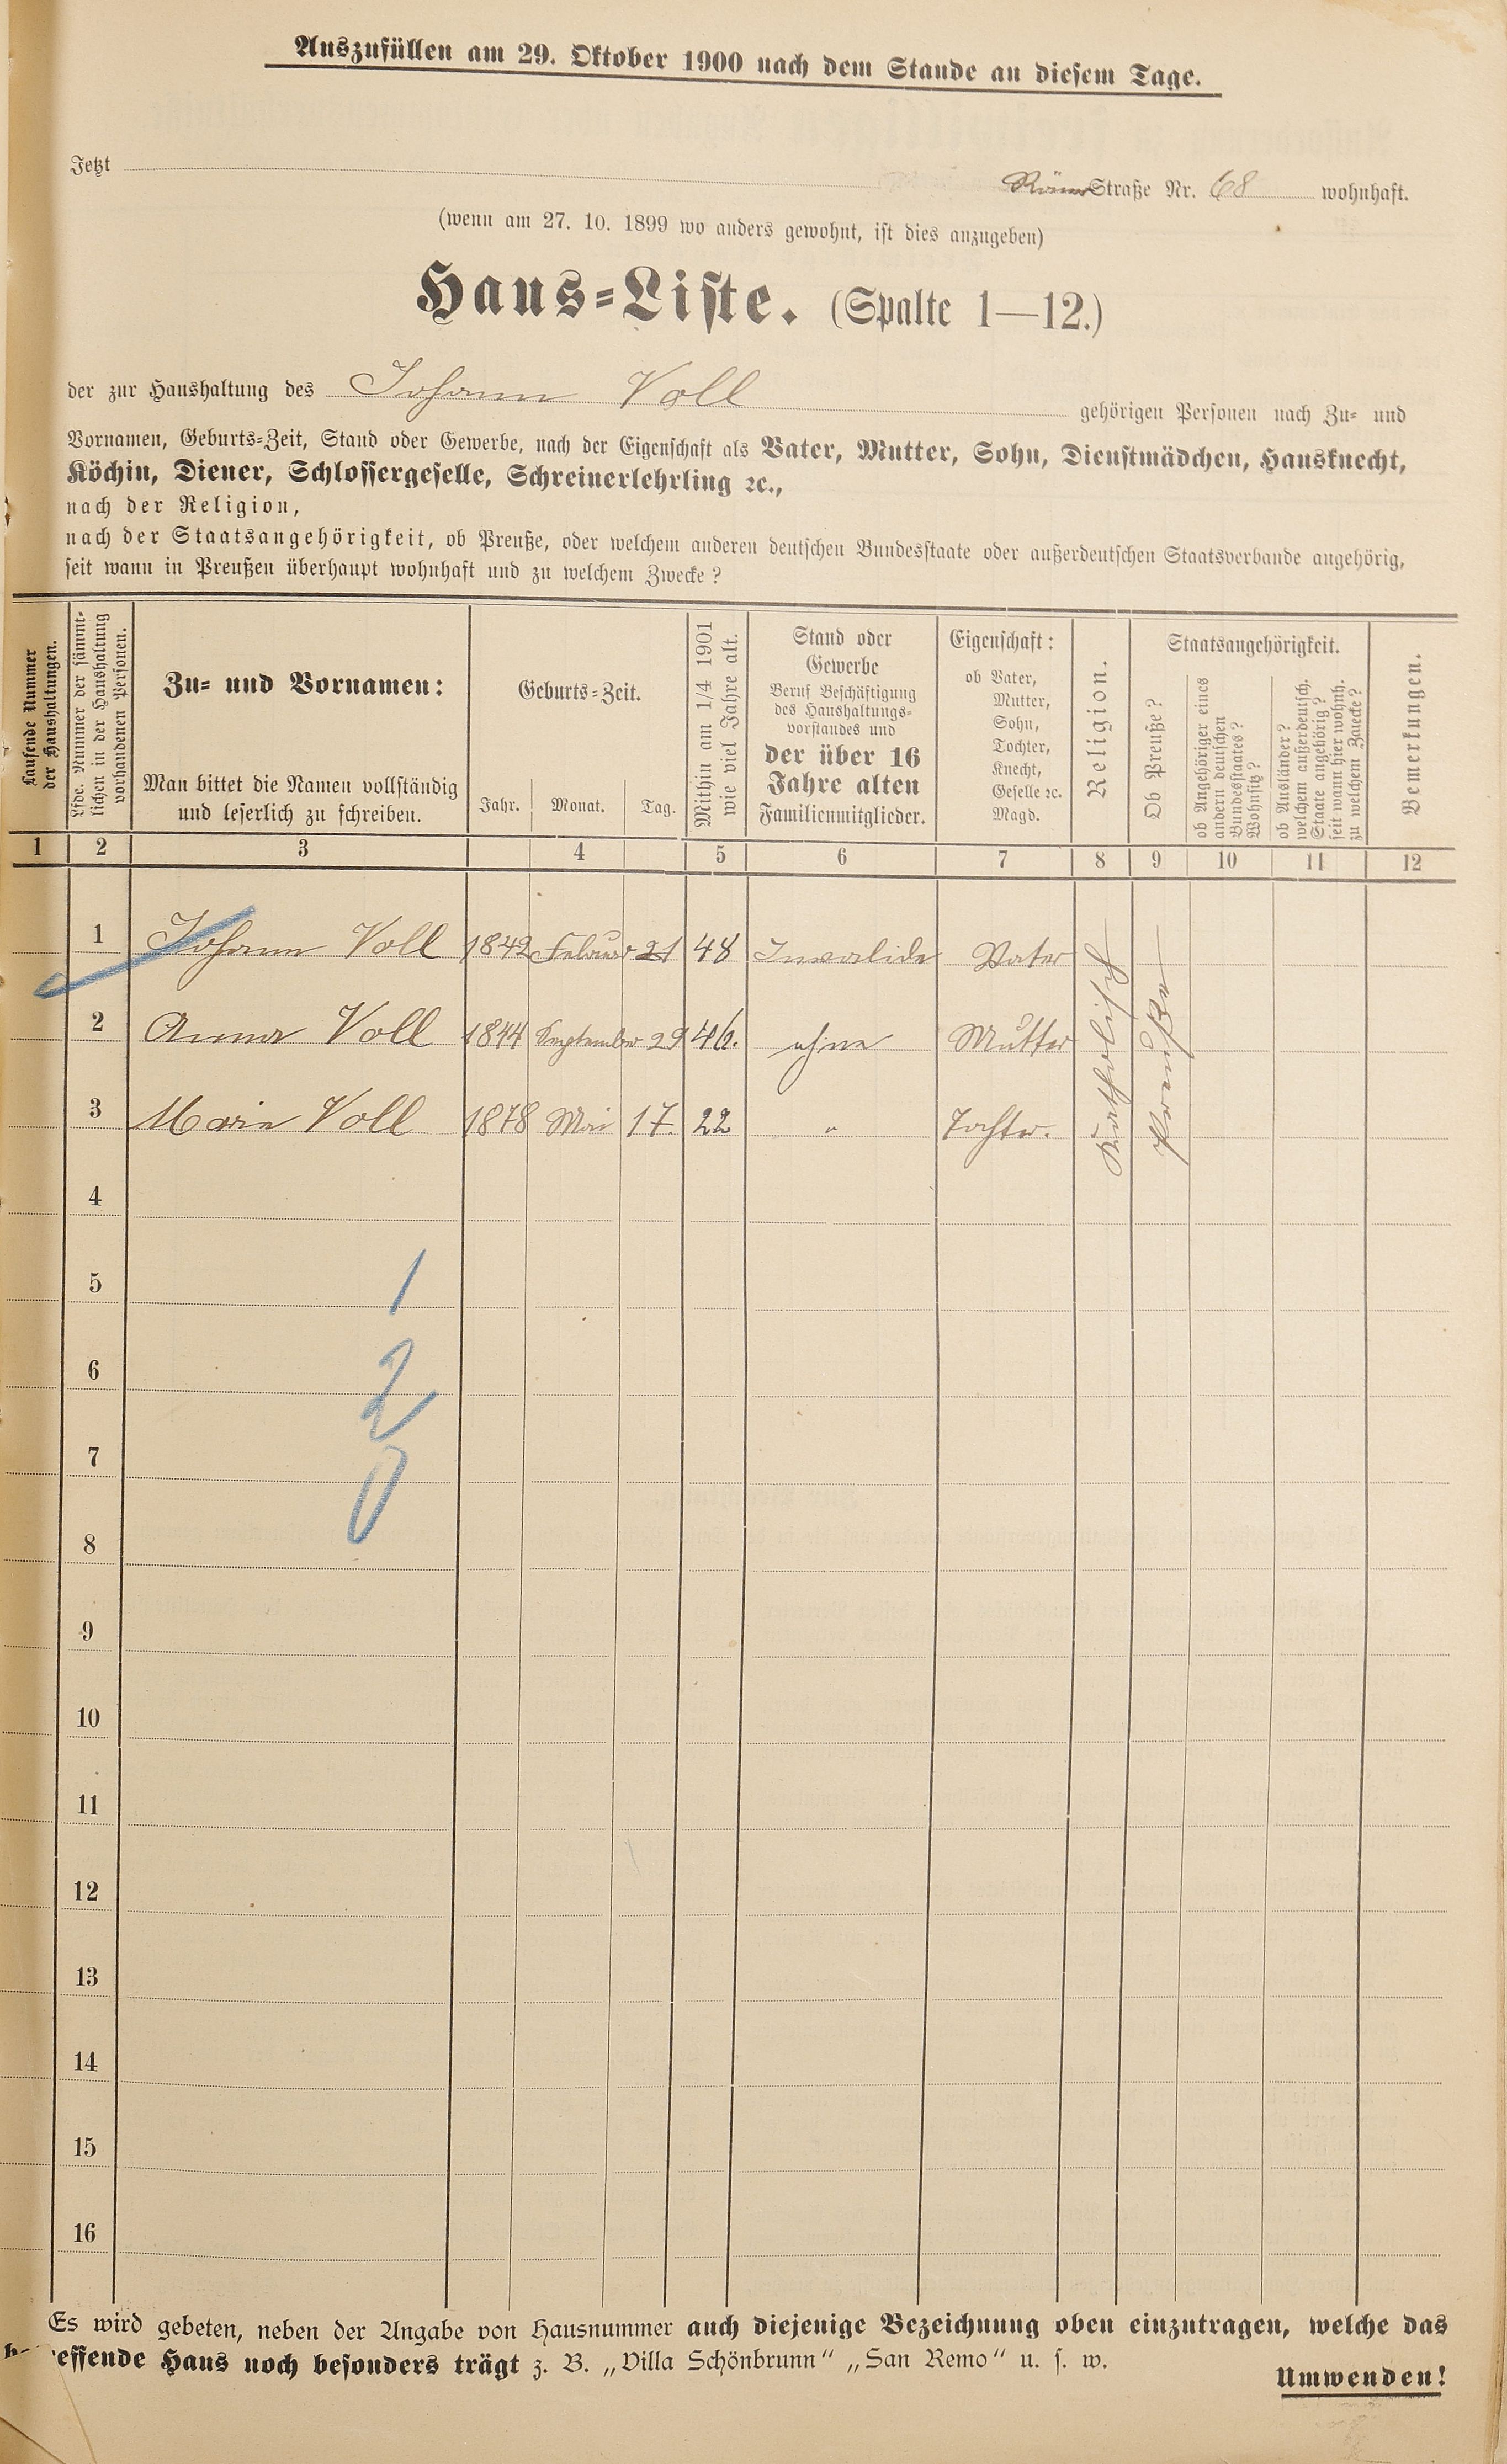 Auszufüllen am 29. Oktober 1900 nach dem Stande an diesem Tage.
Jetzt Römer Straße Nr. 68 wohnhaft.
(wenn am 27. 10. 1899 wo anders gewohnt, ist dies anzugeben)
Haus-Liste. (Spalte 1—12.)
der zur Haushaltung des Johann Voll gehörigen Personen nach Zu- und
Vornamen, Geburts-Zeit, Stand oder Gewerbe, nach der Eigenschaft als Vater, Mutter, Sohn, Dienstmädchen, Hausknecht,
Köchin, Diener, Schlossergeselle, Schreinerlehrling ꝛc.,
nach der Religion,
nach der Staatsangehörigkeit, ob Preuße, oder welchem anderen deutschen Bundesstaate oder außerdeutschen Staatsverbande angehörig,
seit wann in Preußen überhaupt wohnhaft und zu welchem Zwecke?
Laufende Nummer
der Haushaltungen.
Lfde. Nummer der sämmt-
lichen in der Haushaltung
vorhandenen Personen.
Zu- und Vornamen:
Man bittet die Namen vollständig
und leserlich zu schreiben.
Geburts-Zeit.
Jahr. Monat. Tag.
Mithin am 1/4 1901
wie viel Jahre alt.
Stand oder
Gewerbe
Beruf Beschäftigung
des Haushaltungs-
vorstandes und
der über 16
Jahre alten
Familienmitglieder.
Eigenschaft:
ob Vater,
Mutter,
Sohn,
Tochter,
Knecht,
Geselle ꝛc.
Magd.
Religion.
Staatsangehörigkeit.
Ob Preuße?
ob Angehöriger eines
andern deutschen
Bundesstaates?
Wohnsitz?
ob Ausländer?
welchem außerdeutsch.
Staate angehörig?
seit wann hier wohnh.
zu welchem Zwecke?
Bemerkungen.
1 2 3 4 5 6 7 8 9 10 11 12
1 Johann Voll 1842 Februar 21 48 Invalide Vater
2 Anna Voll 1844 September 29 46. ohne Mutter
3 Maria Voll 1878 Mai 17. 22 " Tochter.
Katholisch
Preuße
4
5
1
6
2
7
0
8
9
10
11
12
13
14
15
16
Es wird gebeten, neben der Angabe von Hausnummer auch diejenige Bezeichnung oben einzutragen, welche das
effende Haus noch besonders trägt z. B. „Villa Schönbrunn“ „San Remo“ u. s. w.
Umwenden!